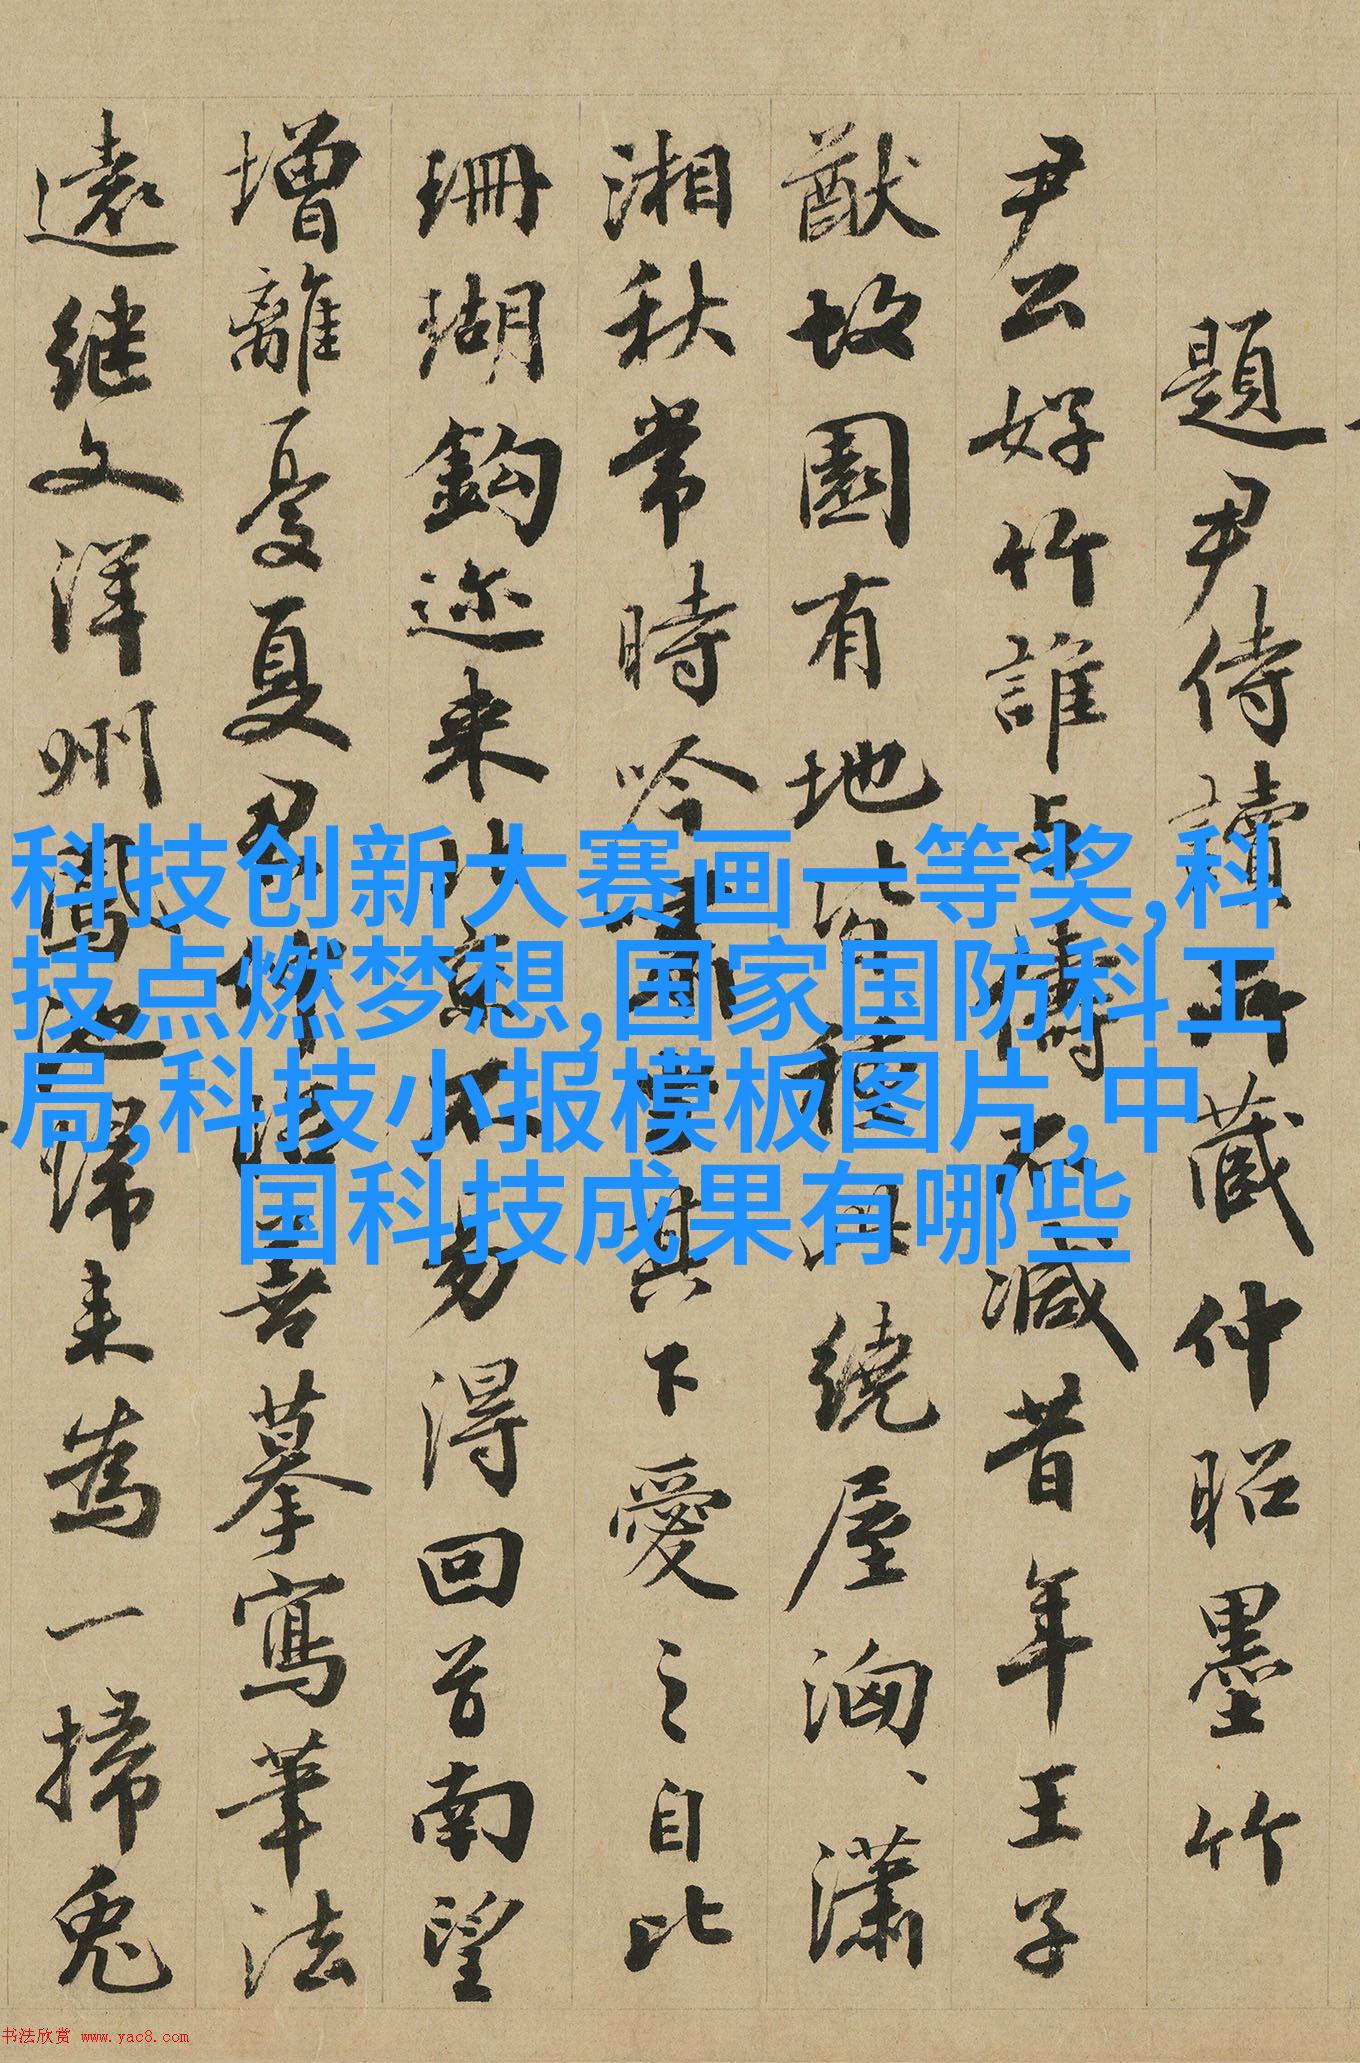 題尹侍讀所藏仲昭墨竹
尹公好竹誰與儔不減昔年王子
猷故園有地皆種此繞屋洶、瀟
湘秋常時吟其下愛之自比
珊瑚鈎迩来北京不易得回首南望
增離憂夏君喜摹寫筆法
遠继文洋州鳳池歸来為一掃兔
科技创新大赛画一等奖,科
技点燃梦想,国家国防科工
局,科技小报模板图片,中
国科技成果有哪些
书法欣赏 www.yac8.com